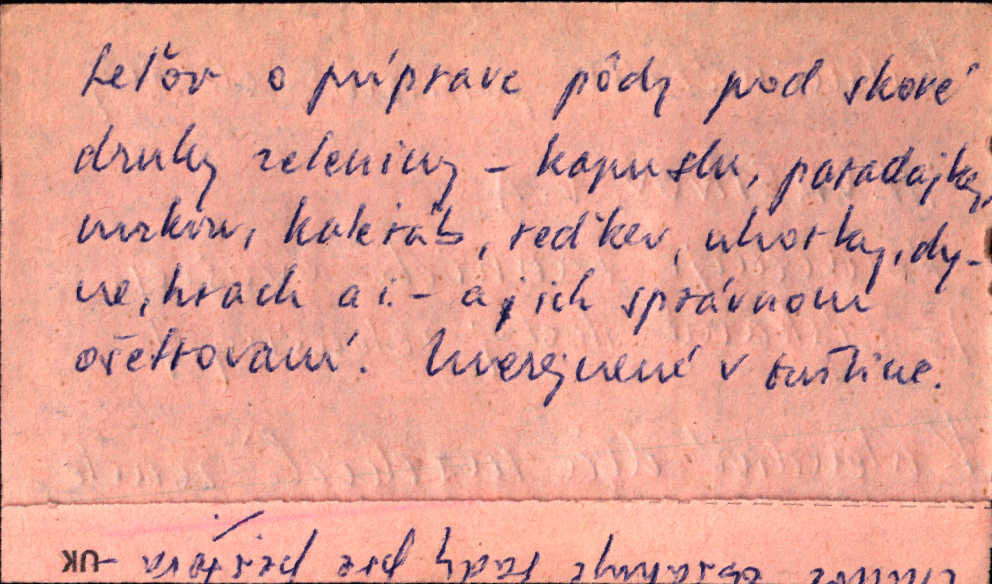 teľov o príprave pôdy pod skoré
druhy zeleniny - kapustu, paradajky,
mrkvu, kaleráb, reďkev, uhorky, dy-
ne, hrach a i. - a jich správnom
ošetrovaní. Uverejnené v ruštine.
obsahuje rady pre pestova-
UK